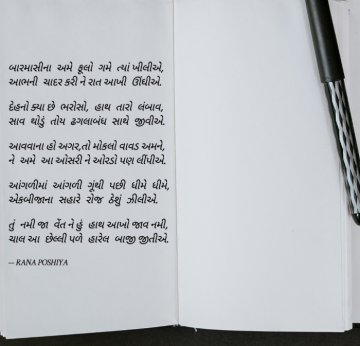 બારમાસીના અમે ફૂલો ગમે ત્યાં ખીલીએ,
આભની ચાદર કરી ને રાત આખી ઊંઘીએ.
દેહનો ક્યા છે ભરોસો, હાથ તારો લંબાવ,
સાવ થોડું તોય ઢગલાબંધ સાથે જીવીએ.
આવવાના હો અગર,તો મોકલો વાવડ અમને,
ને અમે આ ઓસરી ને ઓરડો પણ લીંપીએ.
આંગળીમાં આંગળી ગૂંથી પછી ધીમે ધીમે,
એકબીજાના સહારે રોજ ઠેશું ઝીલીએ.
તું નમી જા વેંત ને હું હાથ આખો જાવ નમી,
ચાલ આ છેલ્લી પળે હારેલ બાજી જીતીએ.
– RANA POSHIYA